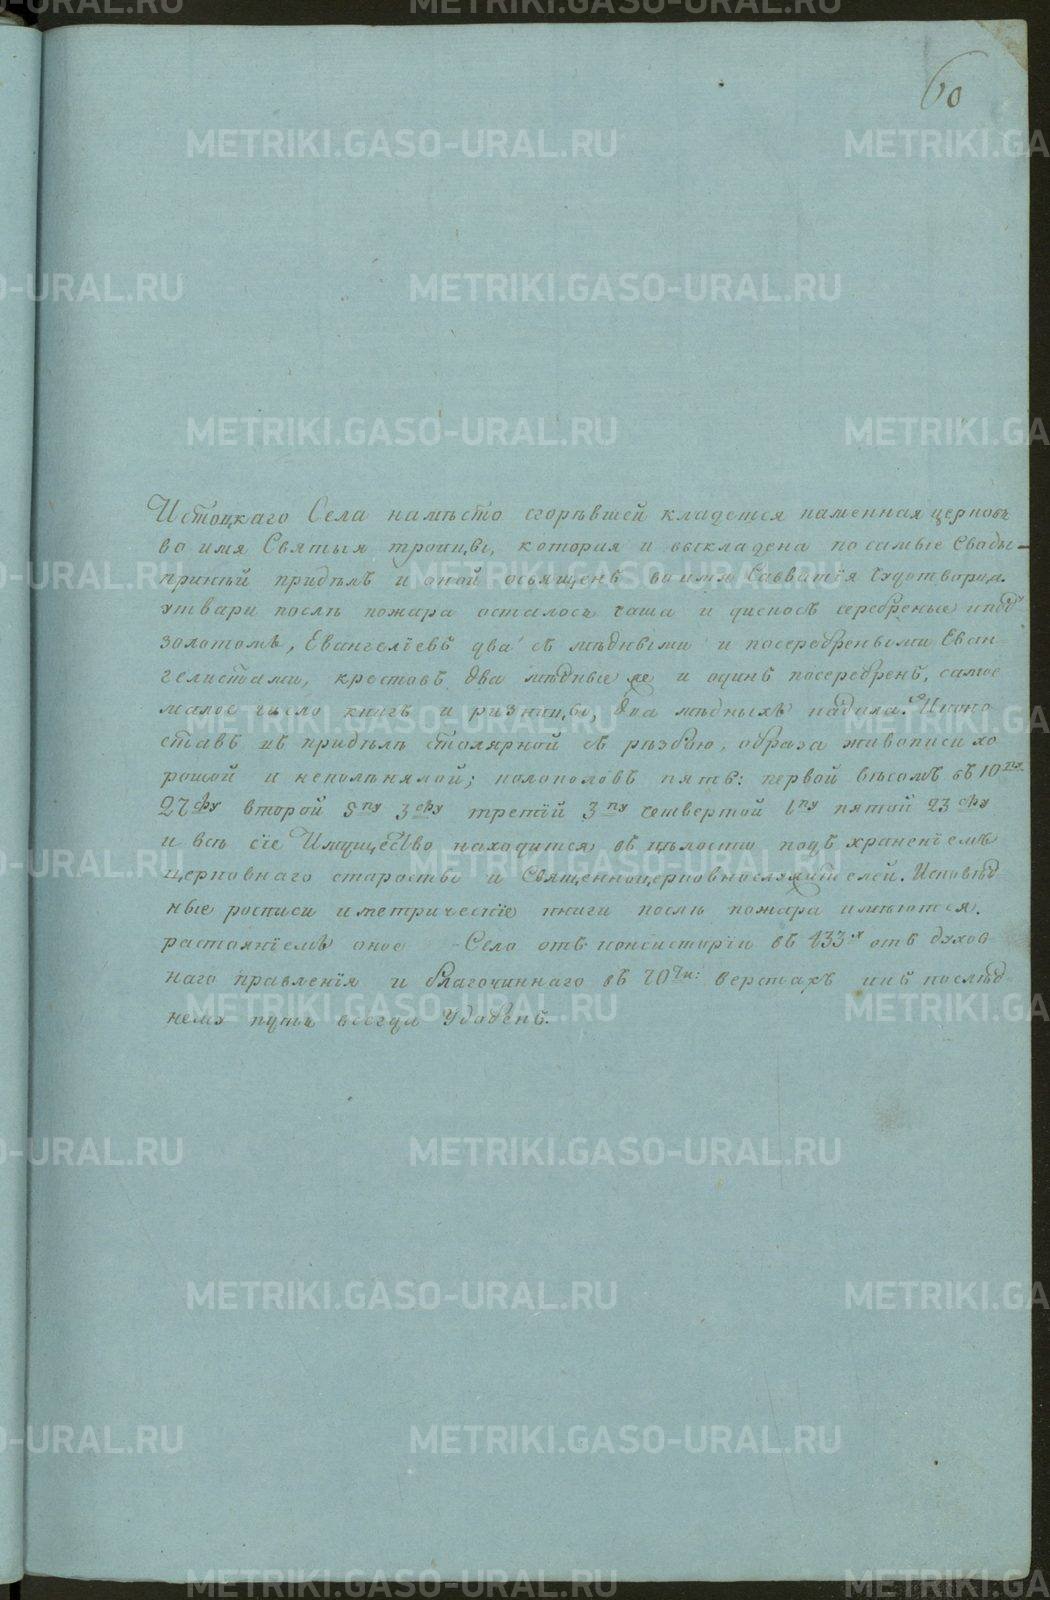 60
Истоцкаго Села намѣсто сгорѣвшей кладется каменная церковь
во имя Святыя троицы, которая и выкладена по самые Своды
придѣлъ и оной освященъ во имя Савватія Чудотворца.
утвари послѣ пожара осталось чаша и дискосъ серебреные подъ
золотомъ, Евангеліевъ два съ мѣдными и посеребреными Еван
гелистами, крестовъ два мѣдные же и одинъ посеребренъ, самое
малое число книгъ и ризницы, два мѣдныхъ кадила. Иконо
ставъ въ придѣлѣ столярной съ рѣзбою, образа живописи хо
рошой и неполинялой; колоколовъ пять: первой вѣсомъ въ 10 пу
27 фу второй 5 пу 3 фу третій 3 пу четвертой 1 пу пятой 23 фу
и все сіе Имущество находится въ цѣлости подъ храненіемъ
церковнаго старосты и Священноцерковнослужителей. Исповѣд
ные росписи и метрическіе книги послѣ пожара имѣются.
растояніемъ оное Село отъ консисторіи въ 133 х отъ духов
наго правленія и благочиннаго въ 70 ти: верстахъ и къ послѣд
нему путь всегда Удобенъ.
METRIKI.GASO-URAL.RU